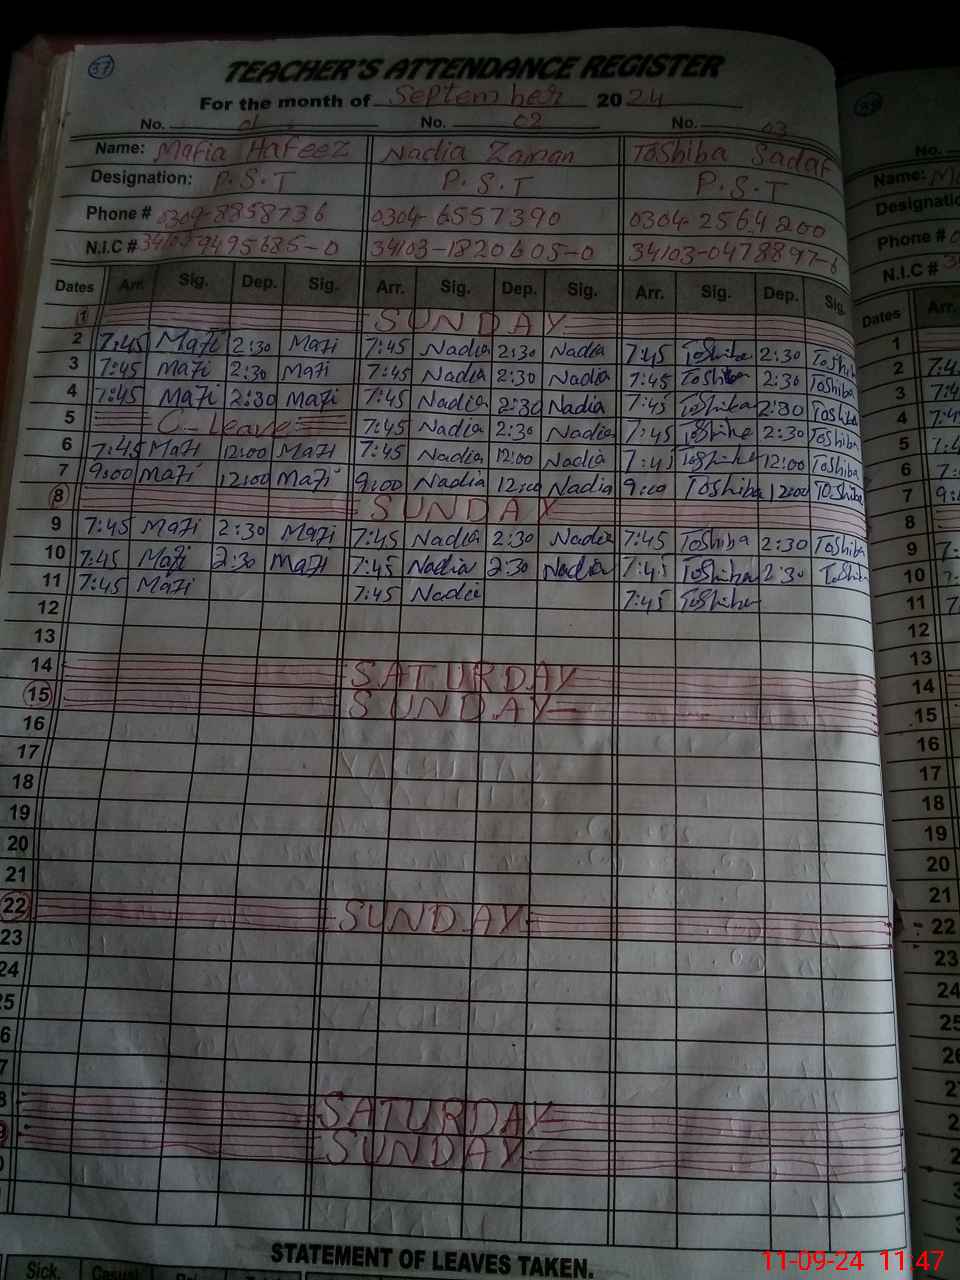 37
TEACHER'S ATTENDANCE REGISTER
For the month of September 2024
No. 01 No. 02 No. 03
Name: Mafia Hafeez Nadia Zaman Toshiba Sadaf
Designation: P.S.T P.S.T P.S.T
Phone # 0309-8858736 0304-6557390 0304-2564200
N.I.C # 9495685-0 34103-1820605-0 34103-0478897-6
Dates Arr. Sig. Dep. Sig. Arr. Sig. Dep. Sig. Arr. Sig. Dep. Sig.
1 SUNDAY
2 7:45 Mafi 2:30 Mafi 7:45 Nadia 2:30 Nadia 7:45 Toshiba 2:30 Toshiba
3 7:45 Mafi 2:30 Mafi 7:45 Nadia 2:30 Nadia 7:45 Toshiba 2:30 Toshiba
4 7:45 Mafi 2:30 Mafi 7:45 Nadia 2:30 Nadia 7:45 Toshiba 2:30 Toshiba
5 C-Leave 7:45 Nadia 2:30 Nadia 7:45 Toshiba 2:30 Toshiba
6 7:45 Mafi 12:00 Mafi 7:45 Nadia 12:00 Nadia 7:45 Toshiba 12:00 Toshiba
7 9:00 Mafi 12:00 Mafi 9:00 Nadia 12:00 Nadia 9:00 Toshiba 12:00 Toshiba
8 SUNDAY
9 7:45 Mafi 2:30 Mafi 7:45 Nadia 2:30 Nadia 7:45 Toshiba 2:30 Toshiba
10 7:45 Mafi 2:30 Mafi 7:45 Nadia 2:30 Nadia 7:45 Toshiba 2:30 Toshiba
11 7:45 Mafi 7:45 Nadia 7:45 Toshiba
12
13
14 SATURDAY
15 SUNDAY
16
17
18
19
20
21
22 SUNDAY
23
24
25
SATURDAY
SUNDAY
STATEMENT OF LEAVES TAKEN.
Sick. Casual
No.
Name: M
Designatio
Phone #
N.I.C #
Dates Arr.
1
2
3
4
5
6
7
8
9
10
11
12
13
14
15
16
17
18
19
20
21
22
23
24
25
26
11-09-24 11:47